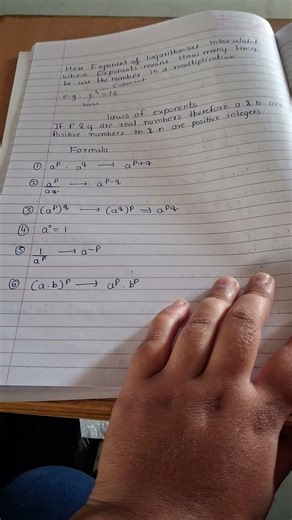 Here Exponent of logarithmas Interrelated
where Exponents means How many times
to use the number in a multiplication
exponent
e.g. 2⁴ = 16
base
laws of exponents
If P & q are real numbers therefore a & b are
Positive numbers m & n are positive integers.
Formula
① aᵖ · a^q → a^p+q
② aᵖ/a^q → a^p-q
③ (aᵖ)^q → (a^q)ᵖ ⇒ a^pq
④ a° = 1
⑤ 1/aᵖ → a^-p
⑥ (a.b)ᵖ → aᵖ . bᵖ